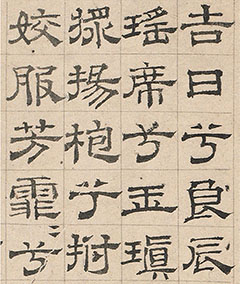 吉日兮良辰
瑶席兮玉瑱
揚枹兮拊
姣服芳霏〻兮